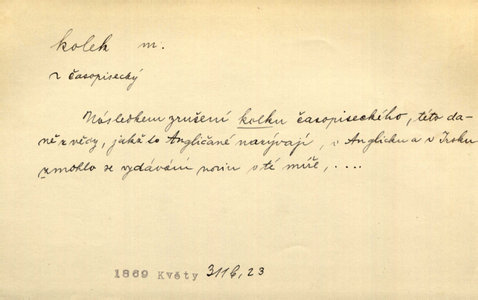 kolek m.
~ časopisecký
Následkem zrušení kolku časopiseckého, této da-
ně z vědy, jakž to Angličané nazývají, v Anglicku a v Irsku
zmohlo se vydávání novin v té míře, ....
1869 Květy 311b, 23